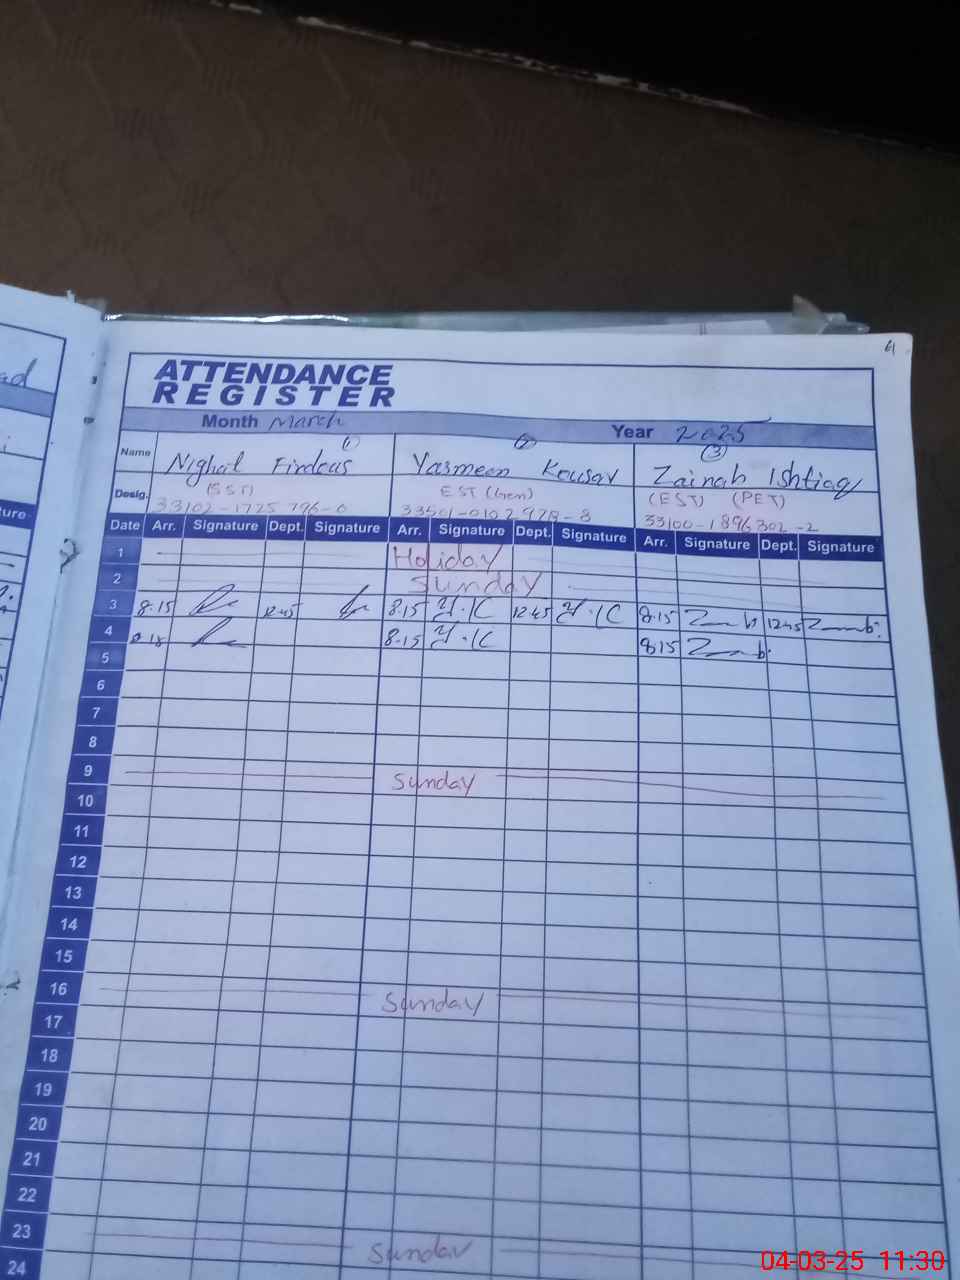 ad
4
ATTENDANCE
REGISTER
Month March
Year 2025
Name
1
Nighat Firdous
2
Yasmeen Kousar
3
Zainab Ishtiaq
Desig.
(SST)
33102-1725 796-0
EST (Gen)
33501-0102978-8
(EST) (PET)
33100-1896302-2
ture
Date Arr. Signature Dept. Signature Arr. Signature Dept. Signature Arr. Signature Dept. Signature
1 Holiday
2 Sunday
3 8.15 12.45 8.15 Y.K 12.45 Y.K 8.15 12.45
4 8.15 8.15 Y.K 8.15
5
6
7
8
9 Sunday
10
11
12
13
14
15
16 Sunday
17
18
19
20
21
22
23 Sunday
24
04-03-25 11:30